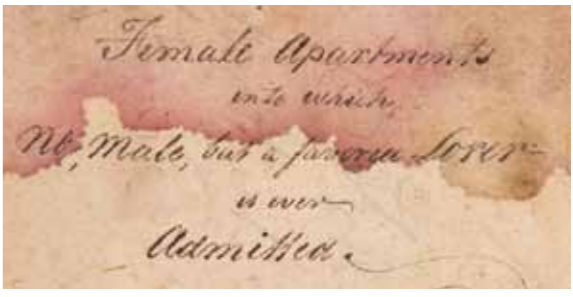 Female Apartments
into which,
No, Male, but a favored Lover
is ever
Admitted.